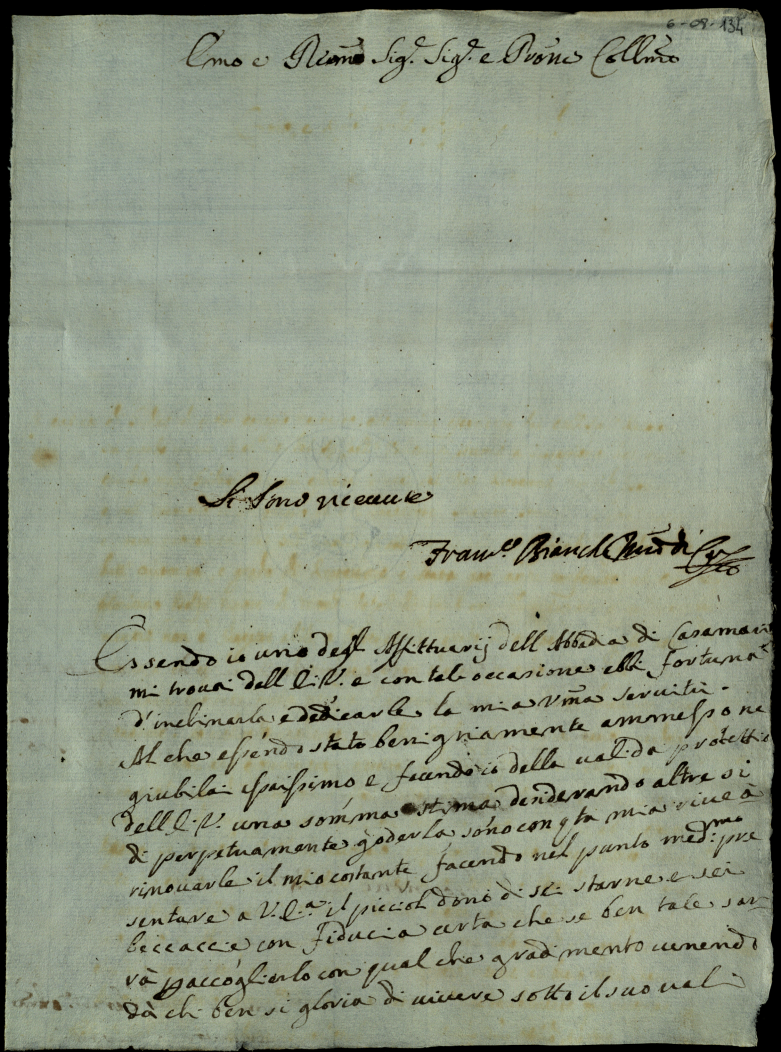 6-08-134
Emo e Rmo Sig.r Sig.r e Prone Collmo
Si sono riceuute
Fran.co Bianchi
Essendo io uno degl Affittuarij dell Abbadia di Casamari
mi trouai dall E. V. e con tale occasione ebbi fortuna
d'inclinarla e dedicarle la mia Vma seruitù.
Al che essendo stato benignamente ammesso ne
giubilai assaissimo e facendo io della ualida protettio
dell E. V. una somma stima desiderando altresi
di perpetuamente goderla sono con qta mia riue a
rinouarle il mio costante facendo nel punto med.mo pre
sentare a V. E.a il picciol dono di sei starne e sei
beccaccie con fiducia certa che se ben tale sa
rà p accoglierlo con qualche gradimento uenendo
da chi ben si gloria di uiuere sotto il suo uali